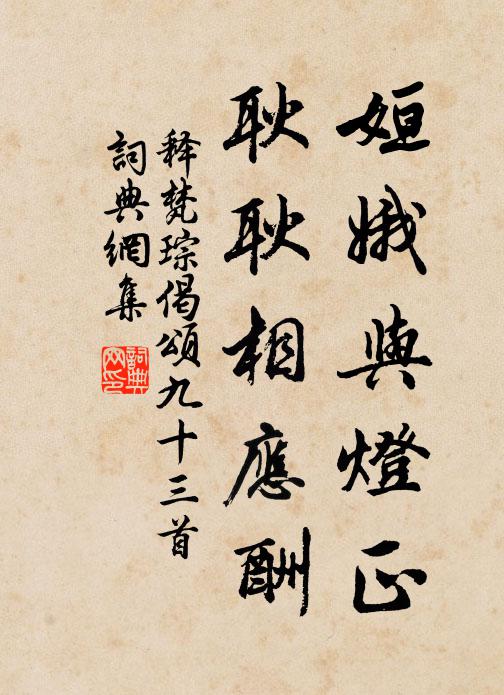 姮娥與燈正
耿耿相應酬
釋梵琮偈頌九十三首
詞典網集
詞典網印